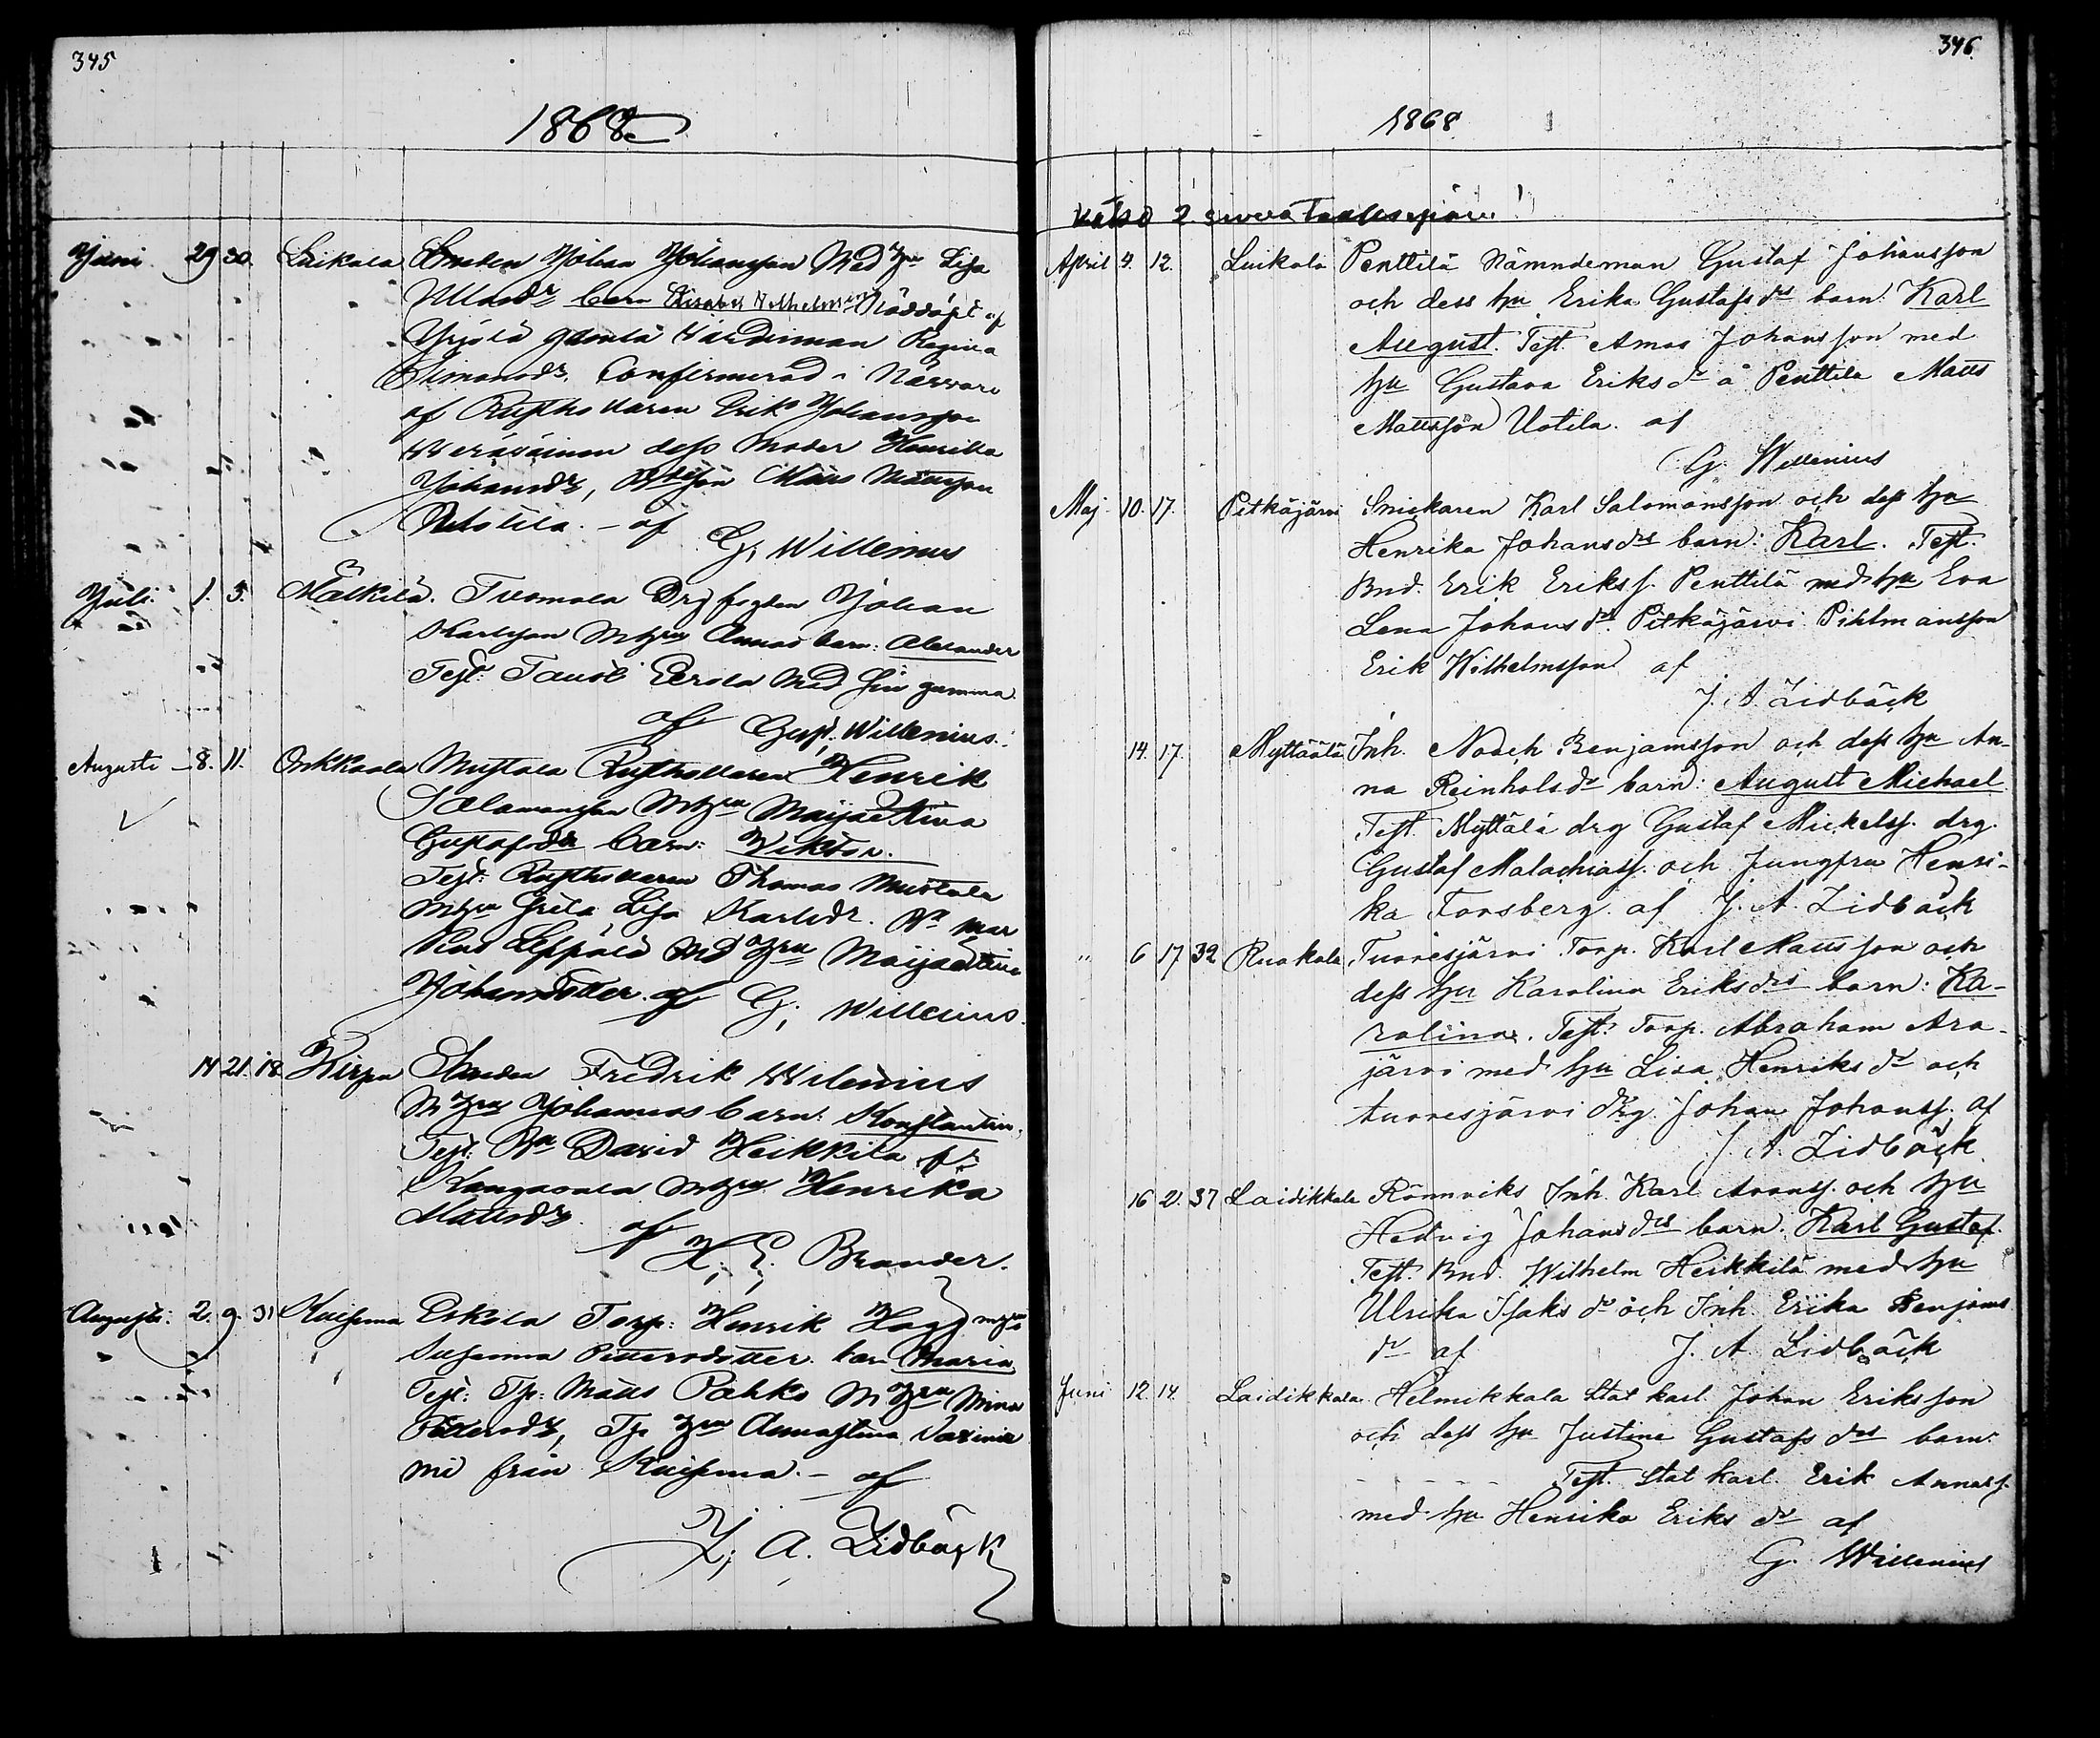 345
1868
Juni 29 30. Leikala Smeden Johan Johansson Med hu Lisa
barn Elisabet Wilhelmina Nöddöpt af
Yrjölä gamla Wärdinnan Regina
Simonsdr. Confirmerad i Närvaro
af Rusthållaren Erik Johansson
dess Moder Henrika
Johansdr, Matts Mattsson
Uotila. – af
G. Willenius
Juli 1. 5. Mälkilä. Tuomola Johan
Karlsson Mhru Annas barn: Alexander
Test: Eerola Med sin gumma.
af Gust. Willenius.
Augusti – 8. 11. Onkkaala Mustala Rusthållaren Henrik
Salomonsson Mhru Maija Stina
Gustafsdr barn: Viktor.
Test: Rusthållaren Thomas Mustala
Mhru Greta Lisa Karlsdr.
Leppälä Md hru Maija Stina
Johansdotter. af G. Willenius.
14 21. 18 Kirpu Smeden Fredrik Wilenius
M hru Johannas barn: Konstantin.
Test: David Heikkilä fr
Mhru Henrika
Mattsdr.
af K. E. Brander.
Augusti: 2. 9. 31 Kuisema Eskola Torp: Henrik Hagg mhru
Susanna Pettersdotter. barn Maria
Test: Tp: Matts Pahko M hru Mina
Pettersdr, Tp hru Annastina
från Kuisema. – af
J. A. Lidbäck
346.
1868
Katso 2 sivua
April 4. 12. Luikala Penttilä Nämndeman Gustaf Johansson
och dess hu Erika Gustafs drs barn: Karl
August. Test. Amos Johansson med
hu Gustava Eriks dr å Penttilä Matts
Mattsson Uotila. af
G. Willenius
Maj 10. 17. Pitkäjärvi Snickaren Karl Salomonsson och dess hu
Henrika Johansdrs barn: Karl. Test.
Bnd. Erik Erikss. Penttilä med hu Eva
Lena Johans dr. Pitkäjärvi Pihlmansson
Erik Wilhelmsson af
J. A. Lidbäck
14. 17. Myttäälä Inh. Noach Benjamsson och dess hu An-
na Reinholsdr barn: August Michael
Test. Myttälä drg Gustaf Mickelss. drg.
Gustaf Malachiass. och Jungfru Henri-
ka Forsberg. af J. A. Lidbäck
" 6 17 32 Ruokola Tuoresjärvi Torp. Karl Mattsson och
dess hu Karolina Eriksdrs barn: Ka-
rolina. Test. Torp. Abraham Ara-
järvi med hu Lisa Henriks dr och
tuoresjärvi drg. Johan Johanss. af
J. A. Lidbäck.
16 21. 37 Laidikkala Rönnviks Inh. Karl Aronss. och hu
Hedvig Johans drs barn. Karl Gustaf.
Test. Bnd. Wilhelm Heikkilä med hu
Ulrika Isaks dr och Inh. Erika Benjams
dr af J. A. Lidbäck
Juni 12 14. Laidikkala Helmikkala Stat karl. Johan Eriksson
och dess hu Justina Gustafs drs barn:
- - - - - Test. Stat karl. Erik Annass.
med hu Henrika Eriks dr af
G. Willenius